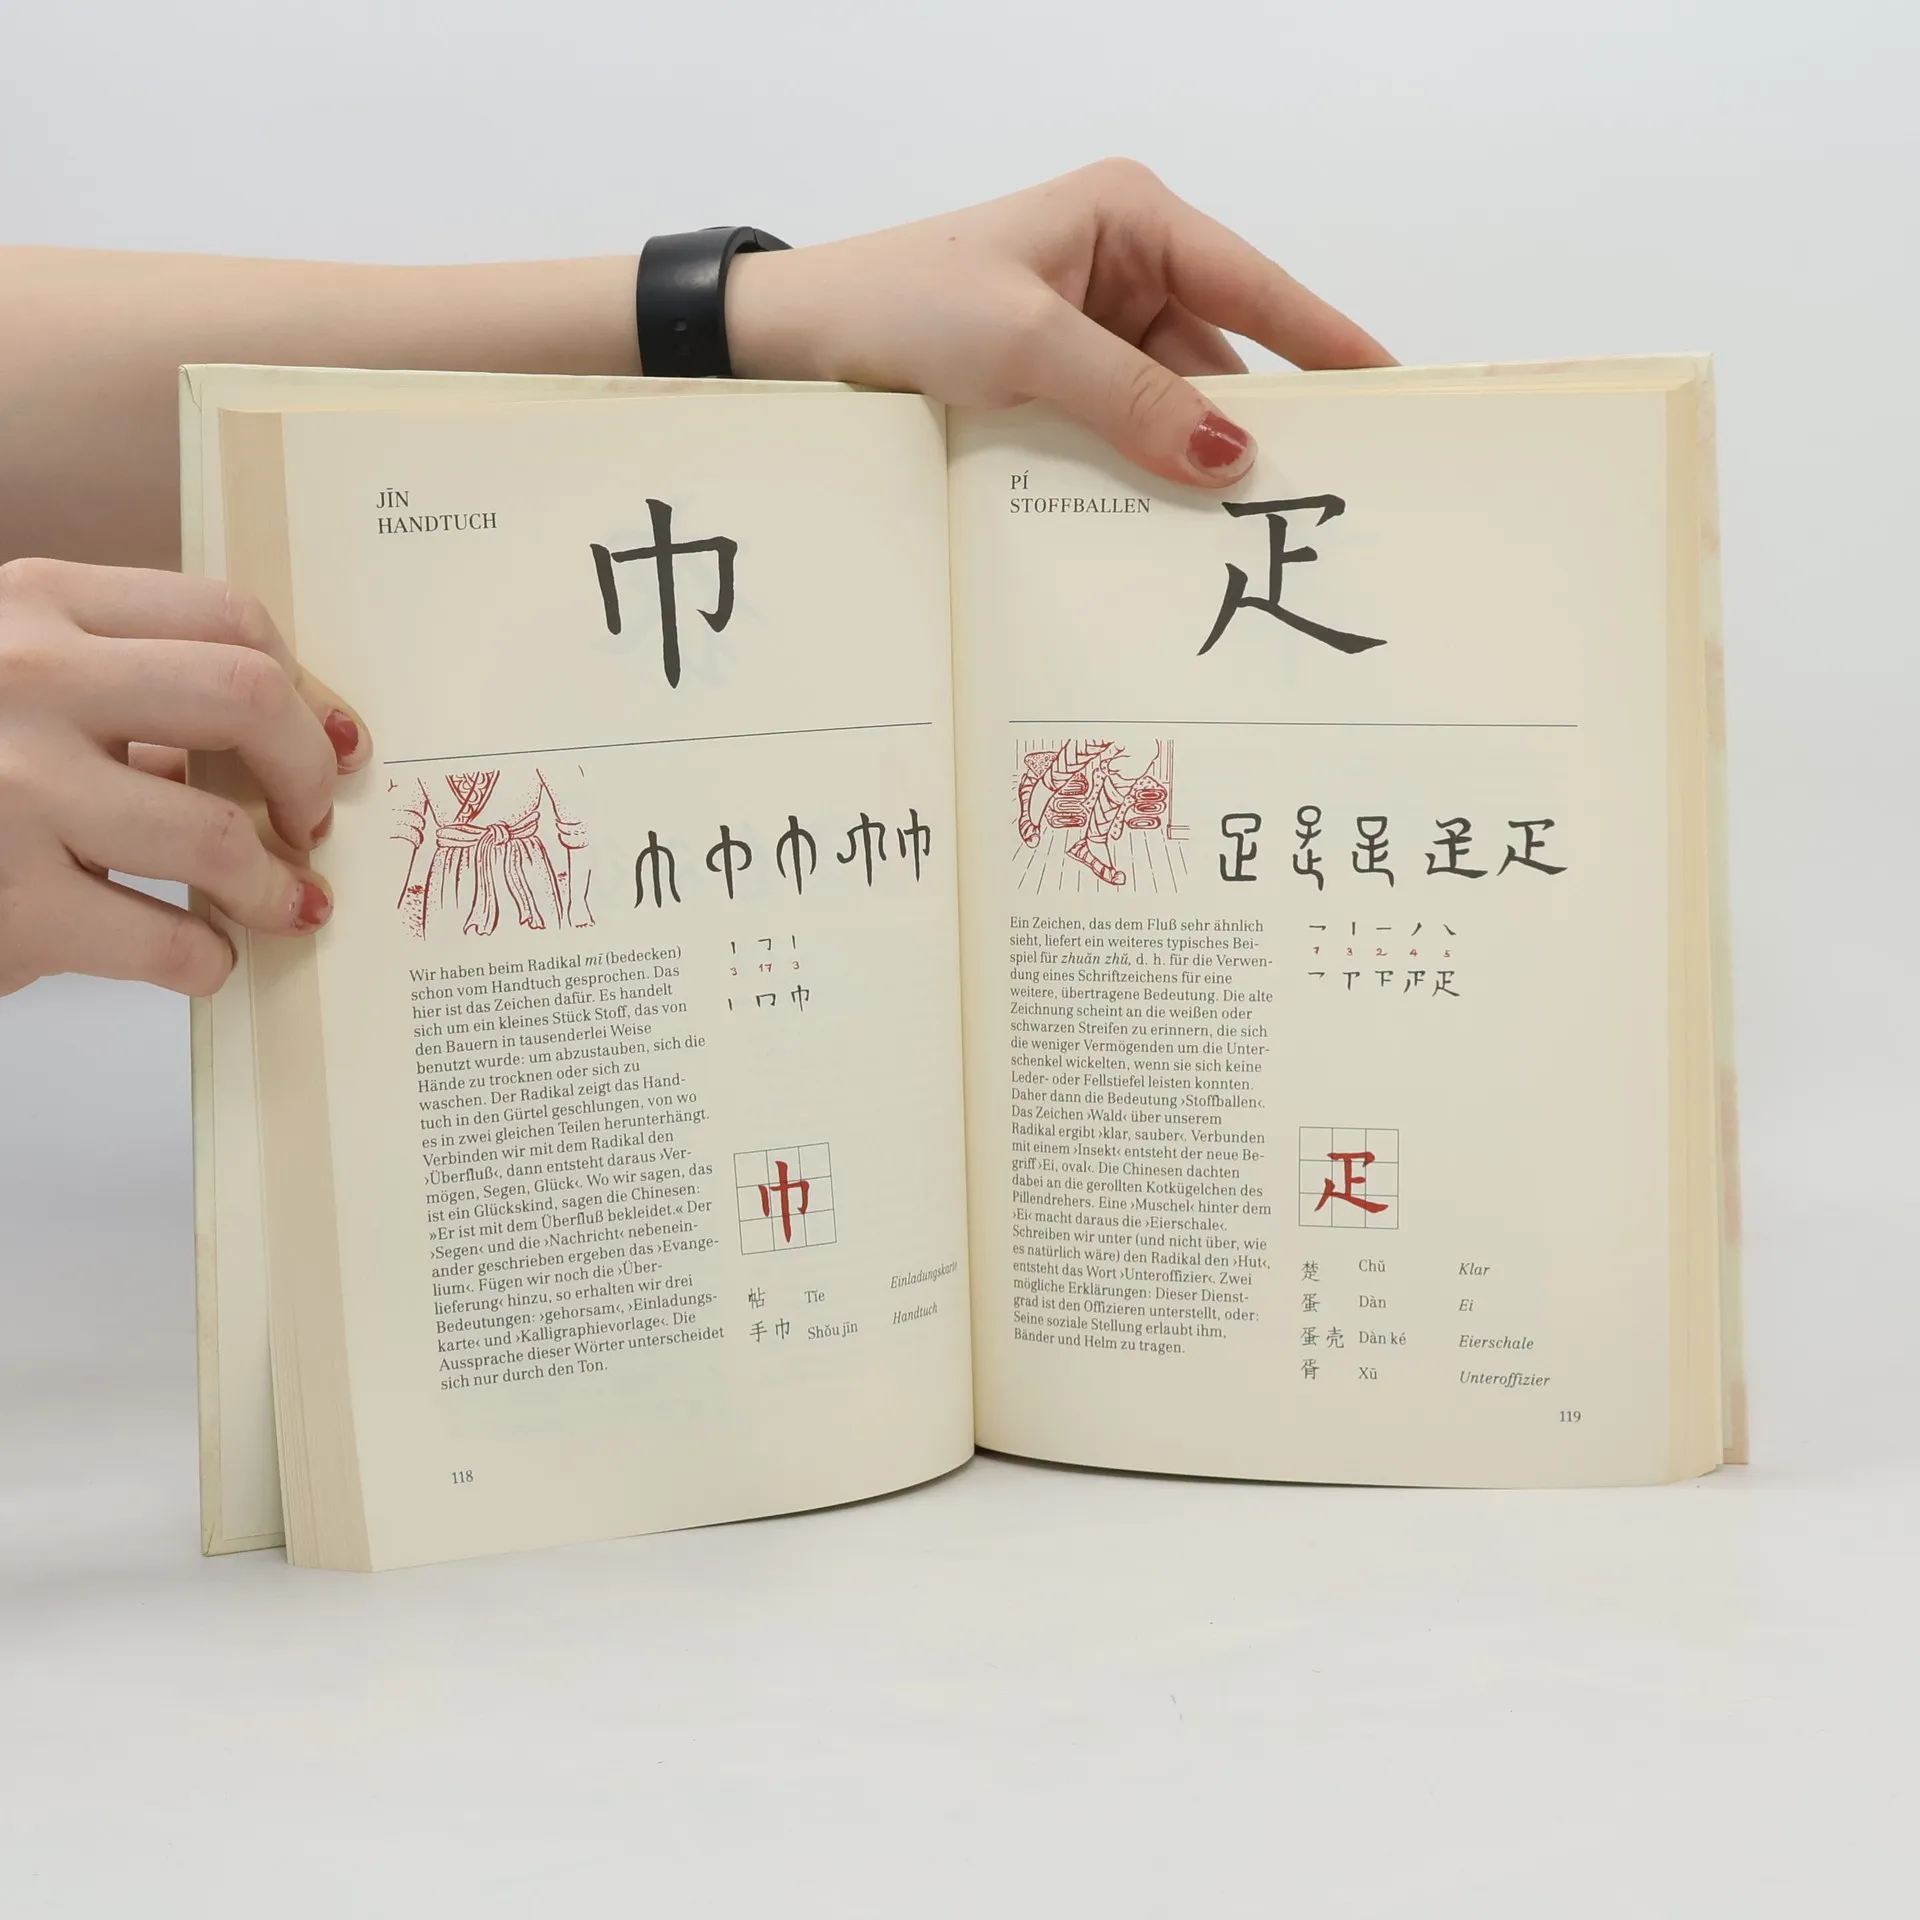 JĪN
HANDTUCH
巾
Wir haben beim Radikal mī (bedecken)
schon vom Handtuch gesprochen. Das
hier ist das Zeichen dafür. Es handelt
sich um ein kleines Stück Stoff, das von
den Bauern in tausenderlei Weise
benutzt wurde: um abzustauben, sich die
Hände zu trocknen oder sich zu
waschen. Der Radikal zeigt das Hand-
tuch in den Gürtel geschlungen, von wo
es in zwei gleichen Teilen herunterhängt.
Verbinden wir mit dem Radikal den
›Überfluß‹, dann entsteht daraus ›Ver-
mögen, Segen, Glück‹. Wo wir sagen, das
ist ein Glückskind, sagen die Chinesen:
»Er ist mit dem Überfluß bekleidet.« Der
›Segen‹ und die ›Nachricht‹ nebenein-
ander geschrieben ergeben das ›Evange-
lium‹. Fügen wir noch die ›Über-
lieferung‹ hinzu, so erhalten wir drei
Bedeutungen: ›gehorsam‹, ›Einladungs-
karte‹ und ›Kalligraphievorlage‹. Die
Aussprache dieser Wörter unterscheidet
sich nur durch den Ton.
3 17 3
巾
帖 Tīe Einladungskarte
手巾 Shǒu jīn Handtuch
118
PÍ
STOFFBALLEN
疋
Ein Zeichen, das dem Fluß sehr ähnlich
sieht, liefert ein weiteres typisches Bei-
spiel für zhuǎn zhǔ, d. h. für die Verwen-
dung eines Schriftzeichens für eine
weitere, übertragene Bedeutung. Die alte
Zeichnung scheint an die weißen oder
schwarzen Streifen zu erinnern, die sich
die weniger Vermögenden um die Unter-
schenkel wickelten, wenn sie sich keine
Leder- oder Fellstiefel leisten konnten.
Daher dann die Bedeutung ›Stoffballen‹.
Das Zeichen ›Wald‹ über unserem
Radikal ergibt ›klar, sauber‹. Verbunden
mit einem ›Insekt‹ entsteht der neue Be-
griff ›Ei, oval‹. Die Chinesen dachten
dabei an die gerollten Kotkügelchen des
Pillendrehers. Eine ›Muschel‹ hinter dem
›Ei‹ macht daraus die ›Eierschale‹.
Schreiben wir unter (und nicht über, wie
es natürlich wäre) den Radikal den ›Hut‹,
entsteht das Wort ›Unteroffizier‹. Zwei
mögliche Erklärungen: Dieser Dienst-
grad ist den Offizieren unterstellt, oder:
Seine soziale Stellung erlaubt ihm,
Bänder und Helm zu tragen.
7 3 2 4 5
疋
楚 Chǔ Klar
蛋 Dàn Ei
蛋壳 Dàn ké Eierschale
胥 Xū Unteroffizier
119